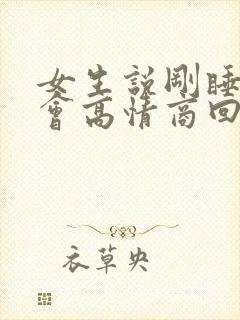 女生説剛睡
會高情商回
衣草央